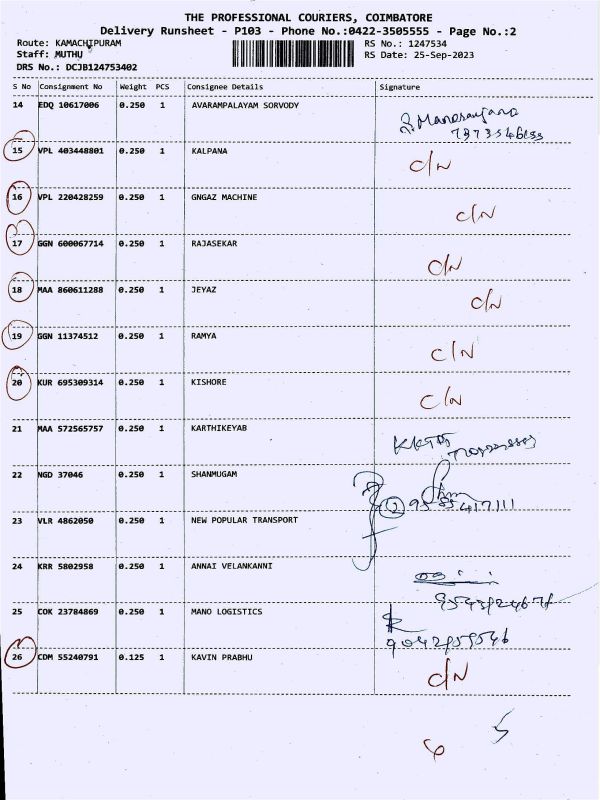 THE PROFESSIONAL COURIERS, COIMBATORE
Delivery Runsheet - P103 - Phone No.:0422-3505555 - Page No.:2
Route: KAMACHIPURAM RS No.: 1247534
Staff: MUTHU RS Date: 25-Sep-2023
DRS No.: DCJB124753402
S No Consignment No Weight PCS Consignee Details Signature
14 EDQ 10617006 0.250 1 AVARAMPALAYAM SORVODY
15 VPL 403448801 0.250 1 KALPANA C/N
16 VPL 220428259 0.250 1 GNGAZ MACHINE C/N
17 GGN 600067714 0.250 1 RAJASEKAR C/N
18 MAA 860611288 0.250 1 JEYAZ C/N
19 GGN 11374512 0.250 1 RAMYA C/N
20 KUR 695309314 0.250 1 KISHORE C/N
21 MAA 572565757 0.250 1 KARTHIKEYAB
22 NGD 37046 0.250 1 SHANMUGAM
2 9585417111
23 VLR 4862050 0.250 1 NEW POPULAR TRANSPORT
24 KRR 5802958 0.250 1 ANNAI VELANKANNI
25 COK 23784869 0.250 1 MANO LOGISTICS
9042959546
26 CDM 55240791 0.125 1 KAVIN PRABHU C/N
6 5